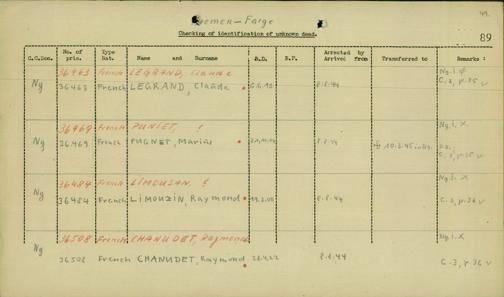 Bremen-Farge
49.
Checking of identification of unknown dead.
89
C.C.Don. No. of pris. Type Nat. Name and Surname B.D. B.P. Arrested by Arrived from Transferred to Remarks :
36463 French LEGRAND, Claude Ng.i.
Ng 36463 French LEGRAND, Claude 8.8.44 C.-3, p.35 v
36469 French PUNIET, ! Ng.i. X
Ng 36469 French PUGNET, Marius 10.2.45 C.-3, p.35 v
36484 French LIMOUSAN, ! Ng.i. X
Ng 36484 French LIMOUZIN, Raymond 8.8.44 C.-3, p.36 v
36508 French CHANUDET, Raymond Ng.i. X
Ng
36508 French CHANUDET, Raymond 8.8.44 C.-3, p.36 v